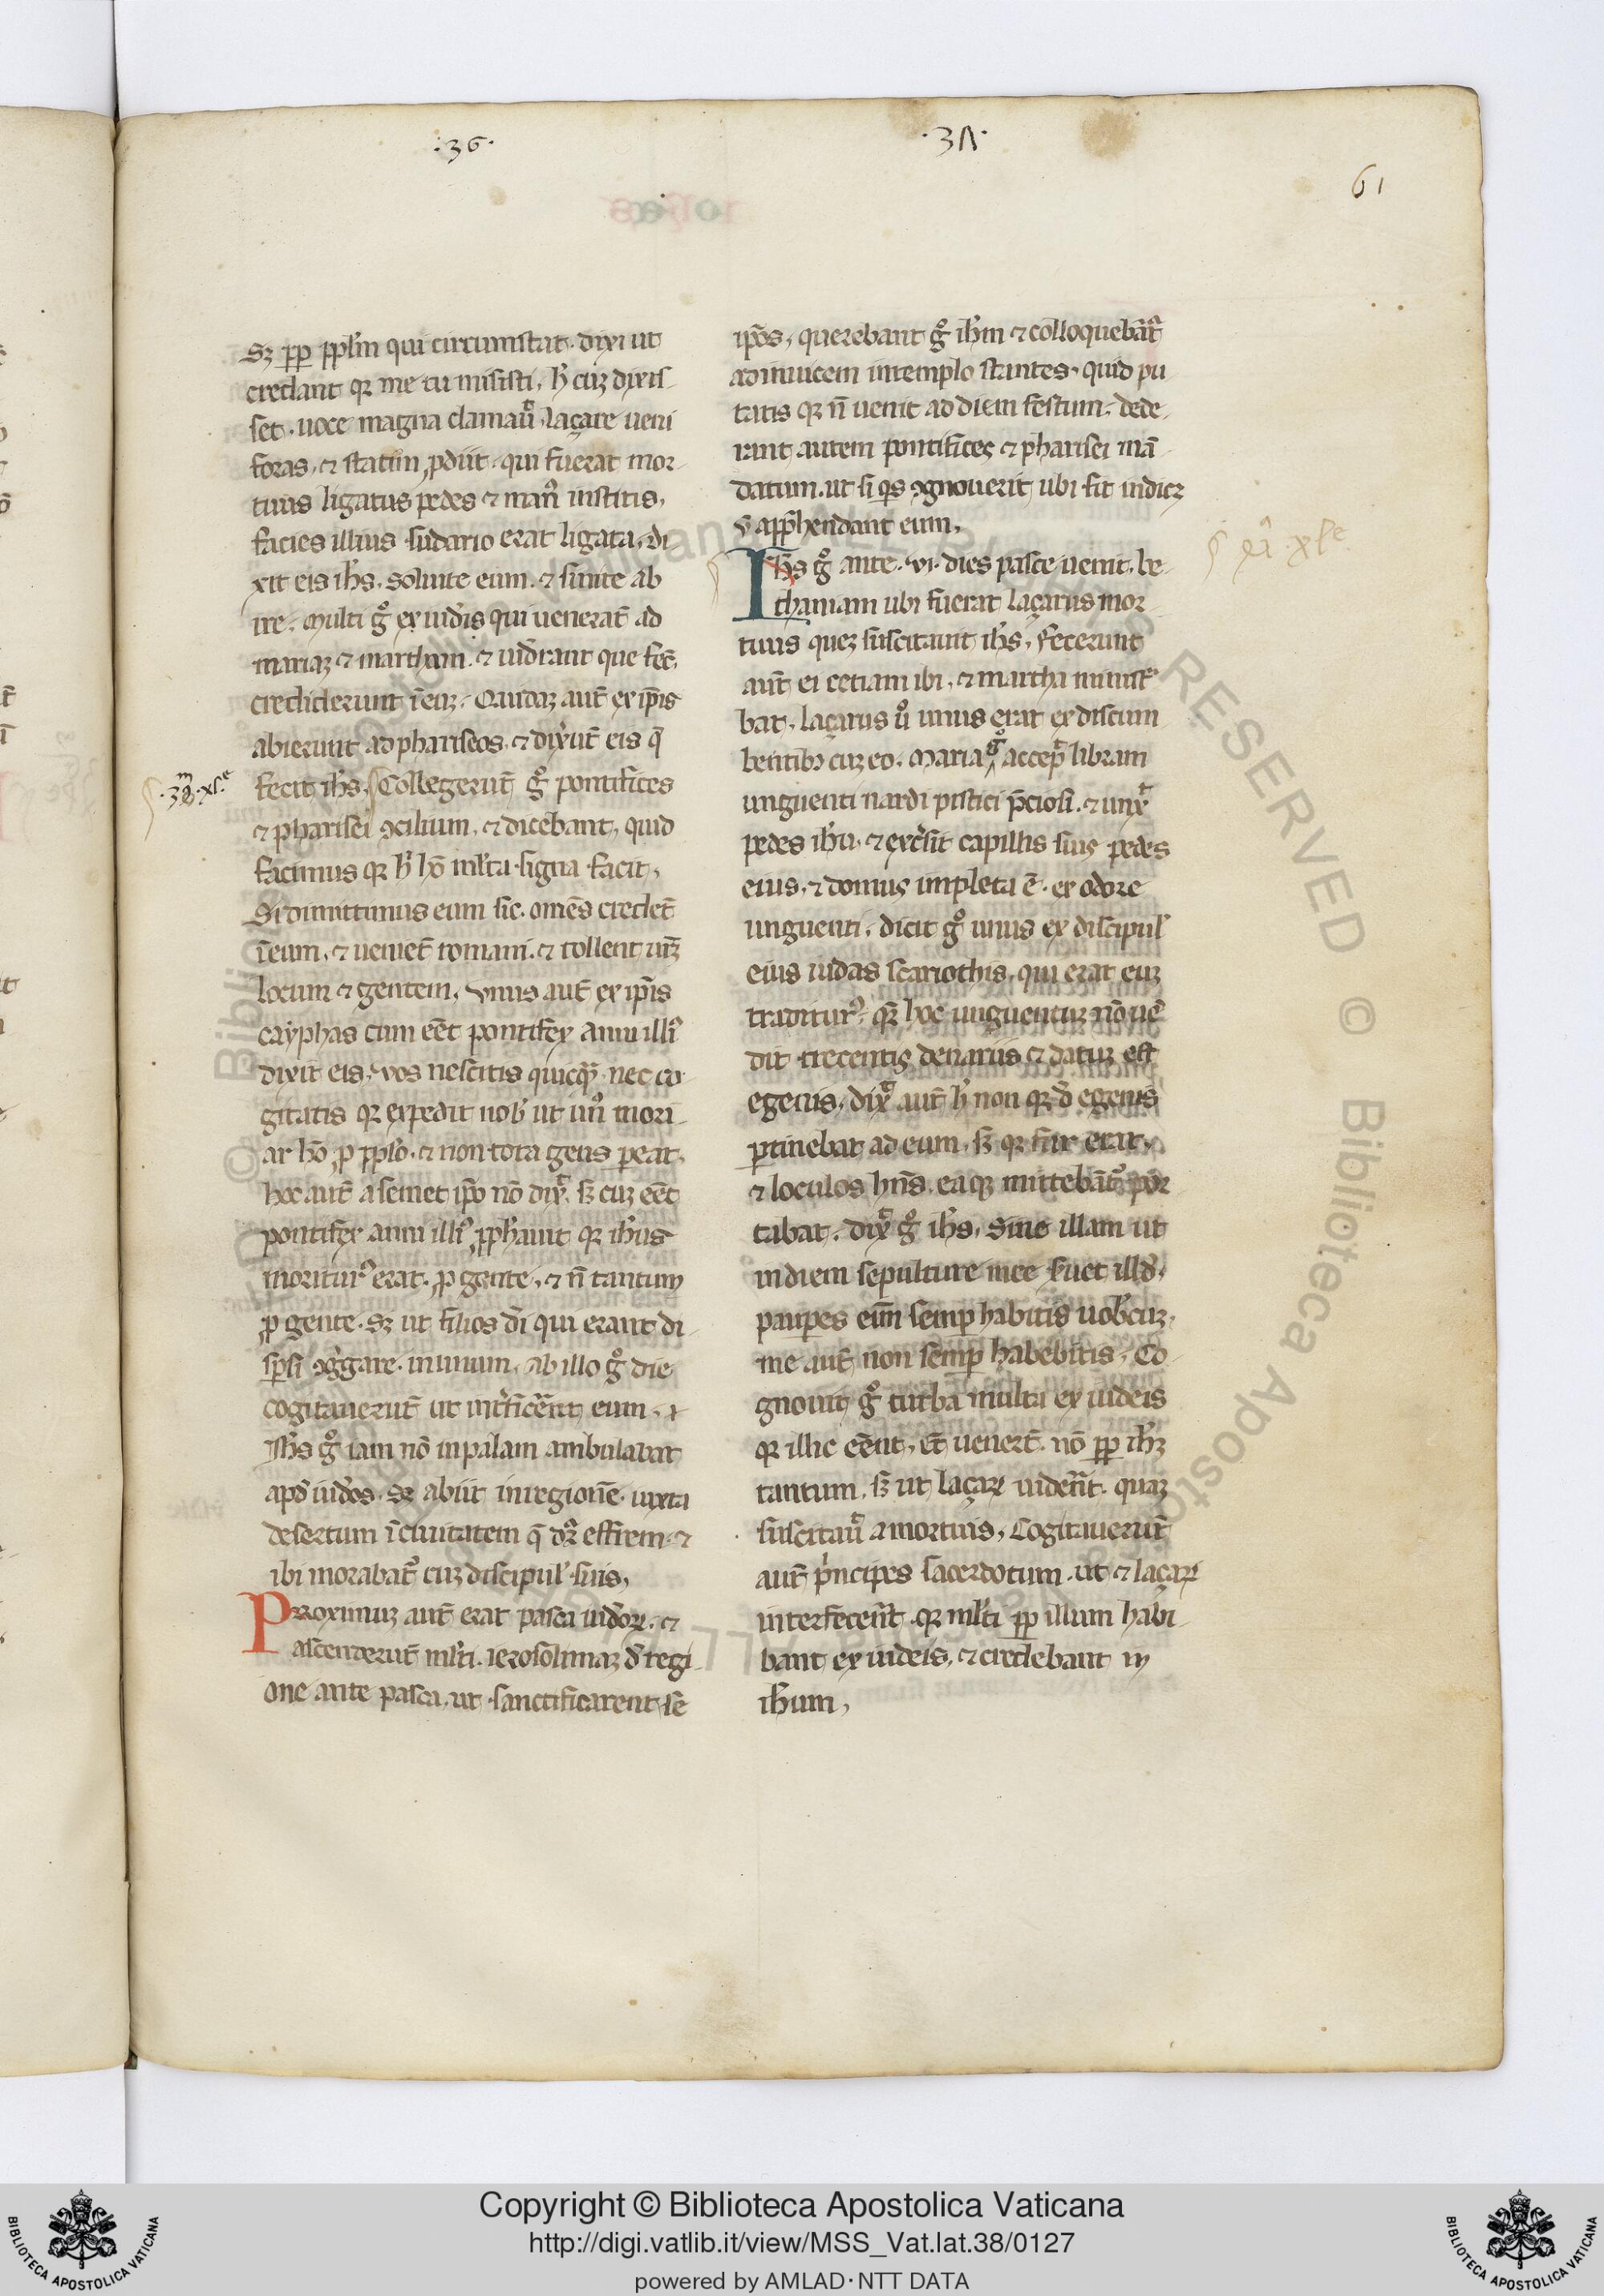 ·36·
·3Λ·
61
Sȝ pp̄ pplm̄ qui circumstat. dixi ut
credant qꝛ me tu misisti. h̄ cuȝ dixis
set. uoce magna clamauͥ laçare ueni
foras. ⁊ statim ꝓdiit. qui fuerat mor
tuus ligatus pedes ⁊ manꝰ institis.
facies illius sudario erat ligata. di
xit eis ih̄s. soluite eum. ⁊ sinite ab
ire. Multi gͦ ex iud̄is qui uenerāt ad
mariaȝ ⁊ martham. ⁊ uid̄rant que fec̄.
crediderunt īeuȝ. Quidaȝ aut̄ ex ip̄is
abierunt ad phariseos. ⁊ dixer̄ut eis q̄
·3ª·xl·e
fecit ih̄s. Collegerūt gͦ pontifices
⁊ pharisei ꝯcilium. ⁊ dicebant. quid
facimus qꝛ h̄ hō ml̄ta signa facit.
Si dimittimus eum sic. om̄es credēt
īeum. ⁊ ueniēt romani. ⁊ tollent nr̄ȝ
locum ⁊ gentem. Vnus aut̄ ex ip̄is
cayphas cum eēt pontifex anni illiꝰ
dixit eis. vos nescitis quicqᷓ nec co
gitatis qꝛ expedit nob̄ ut unꝰ mori
ar hō ꝓ pplo. ⁊ non tota gens ꝑeat.
hoc aut̄ a semet ip̄o nō dixͭ. sȝ cuȝ eēt
pontifex anni illiꝰ ꝓph̄auit qꝛ ih̄us
moriturꝰ erat. ꝓ gente. ⁊ n̄ tantum
ꝓ gente. Sȝ ut filios dī qui erant di
sꝑsi ꝯg̓gare. in unum. ab illo gͦ die
cogitauerūt ut int̓fic̄ent eum.
Ih̄s gͦ iam nō in palam ambulabat
apd̄ iud̄os. Sȝ abiit in regionē. iuxta
desertum ī ciuitatem q̄ dr̄ effrem. ⁊
ibi morabat̄ cuȝ discipul̓ suis.
Proximuȝ aut̄ erat pasca iud̄oꝝ. ⁊
ascenderūt ml̄ti. ierosolimaȝ d̄ regi
one ante pasca. ut sanctificarent se
ip̄os. querebant gͦ ih̄m ⁊ colloquebāt̄
ad inuicem in templo stantes. quid pu
tatis qꝛ n̄ uenit ad diem festum. dede
rant autem pontifices ⁊ pharisei mā
datum. ut si q̄s ꝯgnouerit ubi sit indicȝ
ut appr̄hendant eum.
Ih̄s gͦ ante. vi. dies pasce uenit. be
thaniam ubi fuerat laçarus mor
tuus queȝ suscitauit ih̄s. Fecerunt
aut̄ ei cenam ibi. ⁊ martha minist̄
bat. laçarus uͦ unus erat ex discum
bentibȝ cuȝ eo. Maria gͦ accepͭ libram
unguenti nardi pistici p̄ciosi. ⁊ unxͭ
pedes ih̄u. ⁊ ext̓sit capillis suis pedes
eius. ⁊ domus impleta ē. ex odore
unguenti. dicit gͦ unus ex discipul̓
eius iudas scariothis. qui erat euȝ
traditurꝰ. qᷓꝛ hoc unguentuȝ nō uē
dit trecentis denariis ⁊ datuȝ est
egenis. dixͭ aut̄ h̄ non qꝛ d̄ egenis
ꝑtinebat ad eum. sȝ qꝛ fur erat.
⁊ loculos hn̄s. ea que mittebāt̄ por
tabat. dixͭ gͦ ih̄s. Sine illam ut
in diem sepulture mee s̓uet illd̄.
pauꝑes eim̄ semꝑ habitis uob̄cuȝ.
me aut̄ non semꝑ habebitis. Co
gnouit gͦ turba multa ex iudeis
qꝛ illic eēnt. et̄ uenert̄. nō pp̄ ih̄ȝ
tantum. sȝ ut laçaꝝ uider̄nt. queȝ
suscitauͥ a mortuis. Cogitauerūt
aut̄ p̓ncipes sacerdotum. ut ⁊ laçaꝝ
interfecer̄nt. qꝛ ml̄ti pp̄ illum habi
bant ex iudeis. ⁊ credebant in
ih̄um.
Copyright © Biblioteca Apostolica Vaticana
http://digi.vatlib.it/view/MSS_Vat.lat.38/0127
powered by AMLAD·NTT DATA